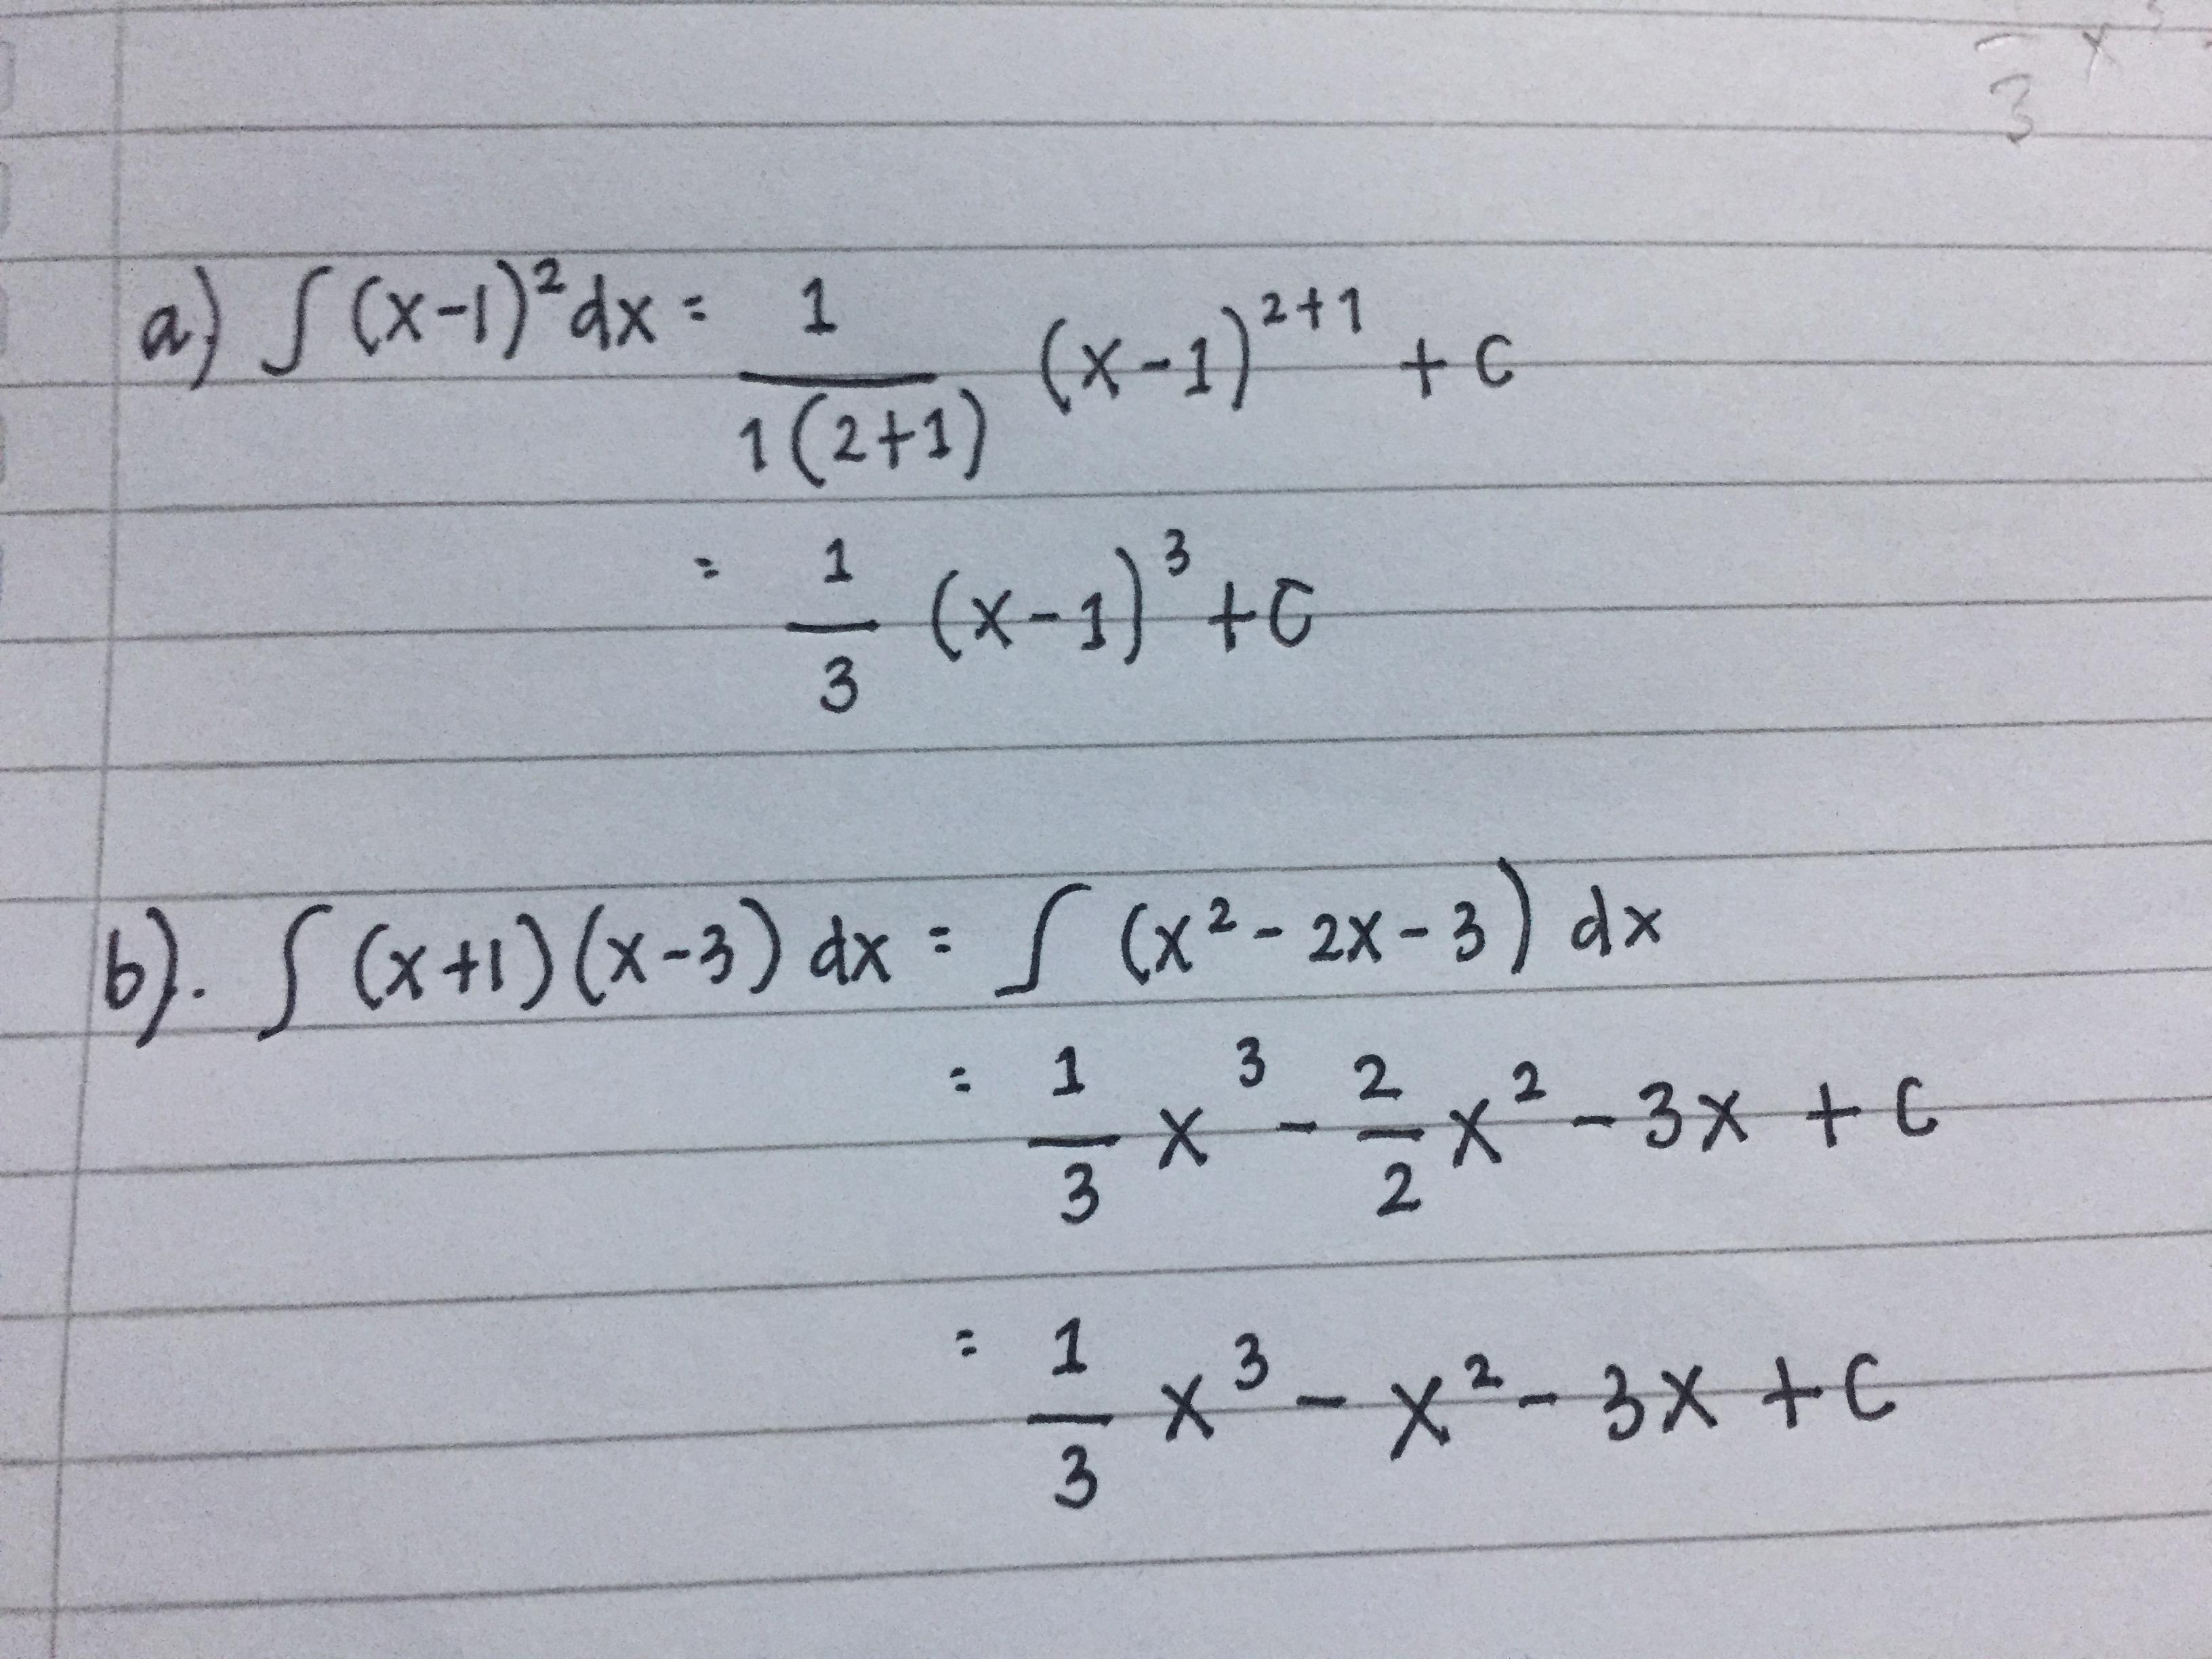 3 x³
a) ∫(x-1)² dx = 1/1(2+1) (x-1)²⁺¹ + C
= 1/3 (x-1)³ + C
b). ∫(x+1)(x-3) dx = ∫(x² - 2x - 3) dx
= 1/3 x³ - 2/2 x² - 3x + C
= 1/3 x³ - x² - 3x + C